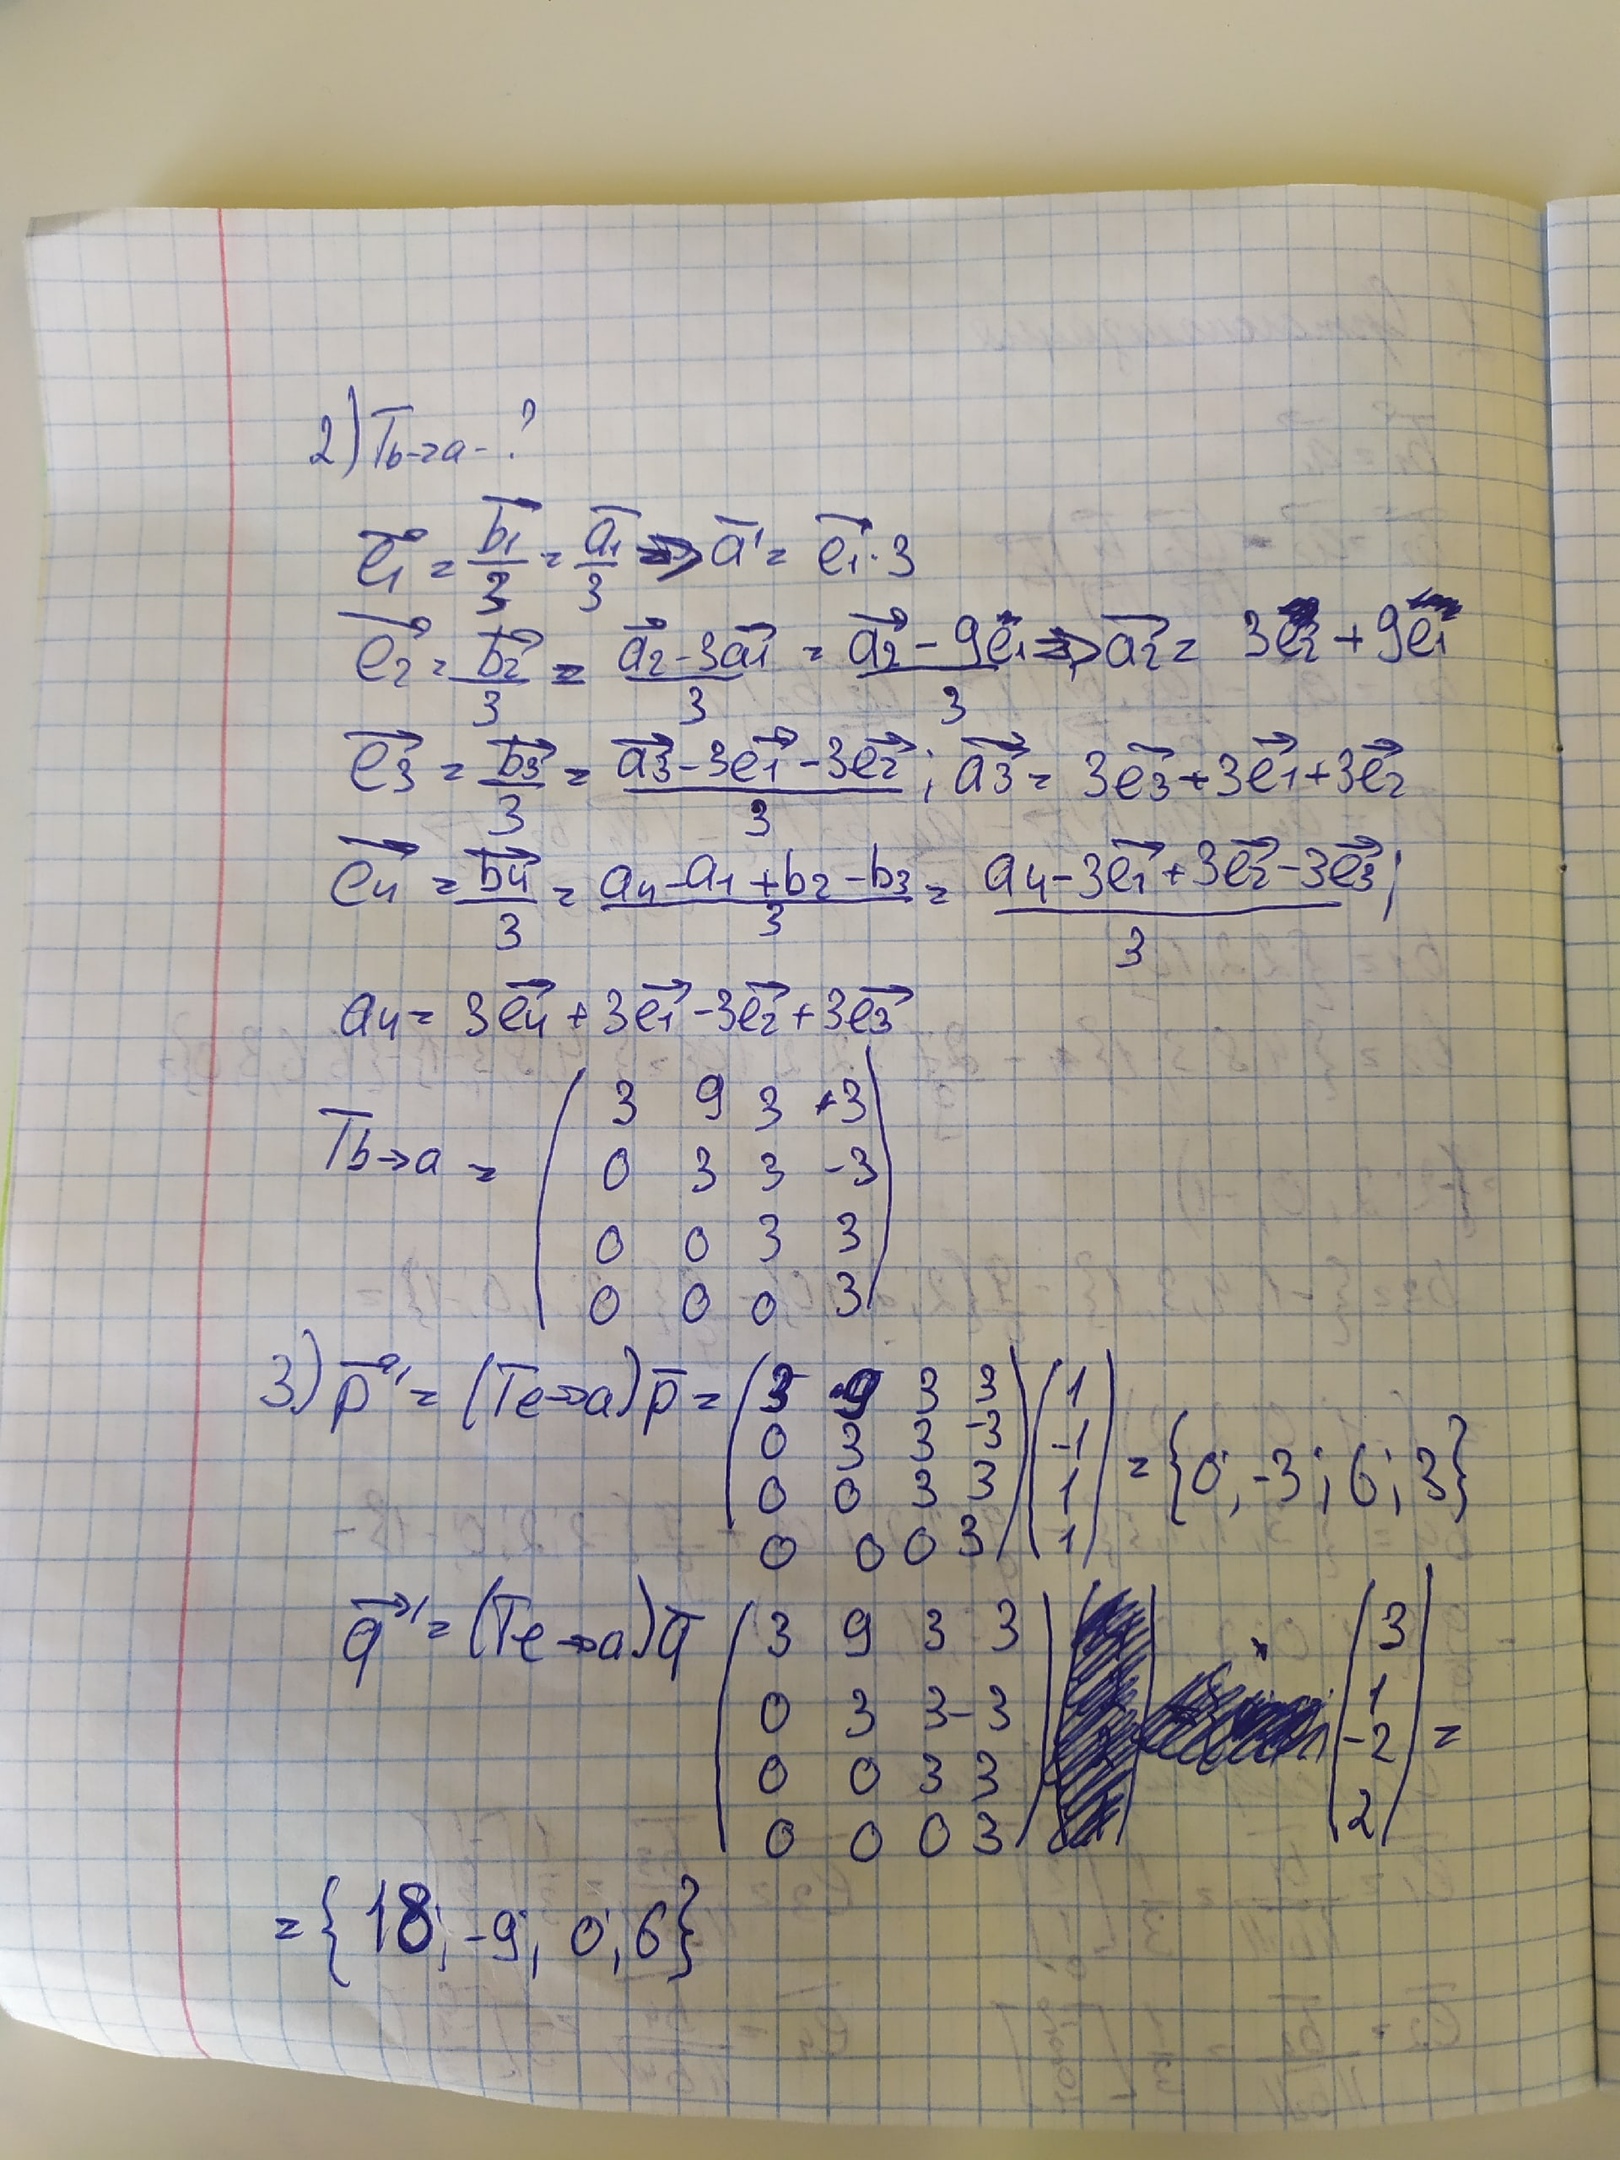 2) Tb→a - ?
e1 = b1/3 = a1/3 => a' = e1·3
e2 = b2/3 = (a2 - 3a1)/3 = (a2 - 9e1)/3 => a2 = 3e2 + 9e1
e3 = b3/3 = (a3 - 3e1 - 3e2)/3; a3 = 3e3 + 3e1 + 3e2
e4 = b4/3 = (a4 - a1 + b2 - b3)/3 = (a4 - 3e1 + 3e2 - 3e3)/3;
a4 = 3e4 + 3e1 - 3e2 + 3e3
3 9 3 +3
Tb→a = 0 3 3 -3
0 0 3 3
0 0 0 3
3) p' = (Te→a)p = (3 9 3 3) (1)
0 3 3 -3 -1 = {0; -3; 6; 3}
0 0 3 3 1
0 0 0 3 1
q' = (Te→a)q (3 9 3 3) · (3)
0 3 3 -3 1
0 0 3 3 -2 =
0 0 0 3 2
= {18; -9; 0; 6}